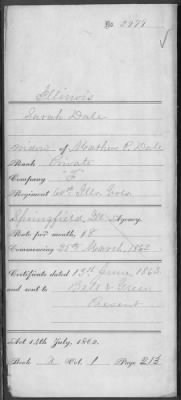 No. 2979
Illinois
Sarah Dale
widow of Matthew P. Dale
Rank Private
Company "F"
Regiment 60th Ills. Vols.
Springfield, Ill. Agency.
Rate per month, $8
Commencing 25th March, 1862
Certificate dated 13th June 1863.
and sent to
Present
Act 14th July, 1862.
Book A Vol. 1 Page 213